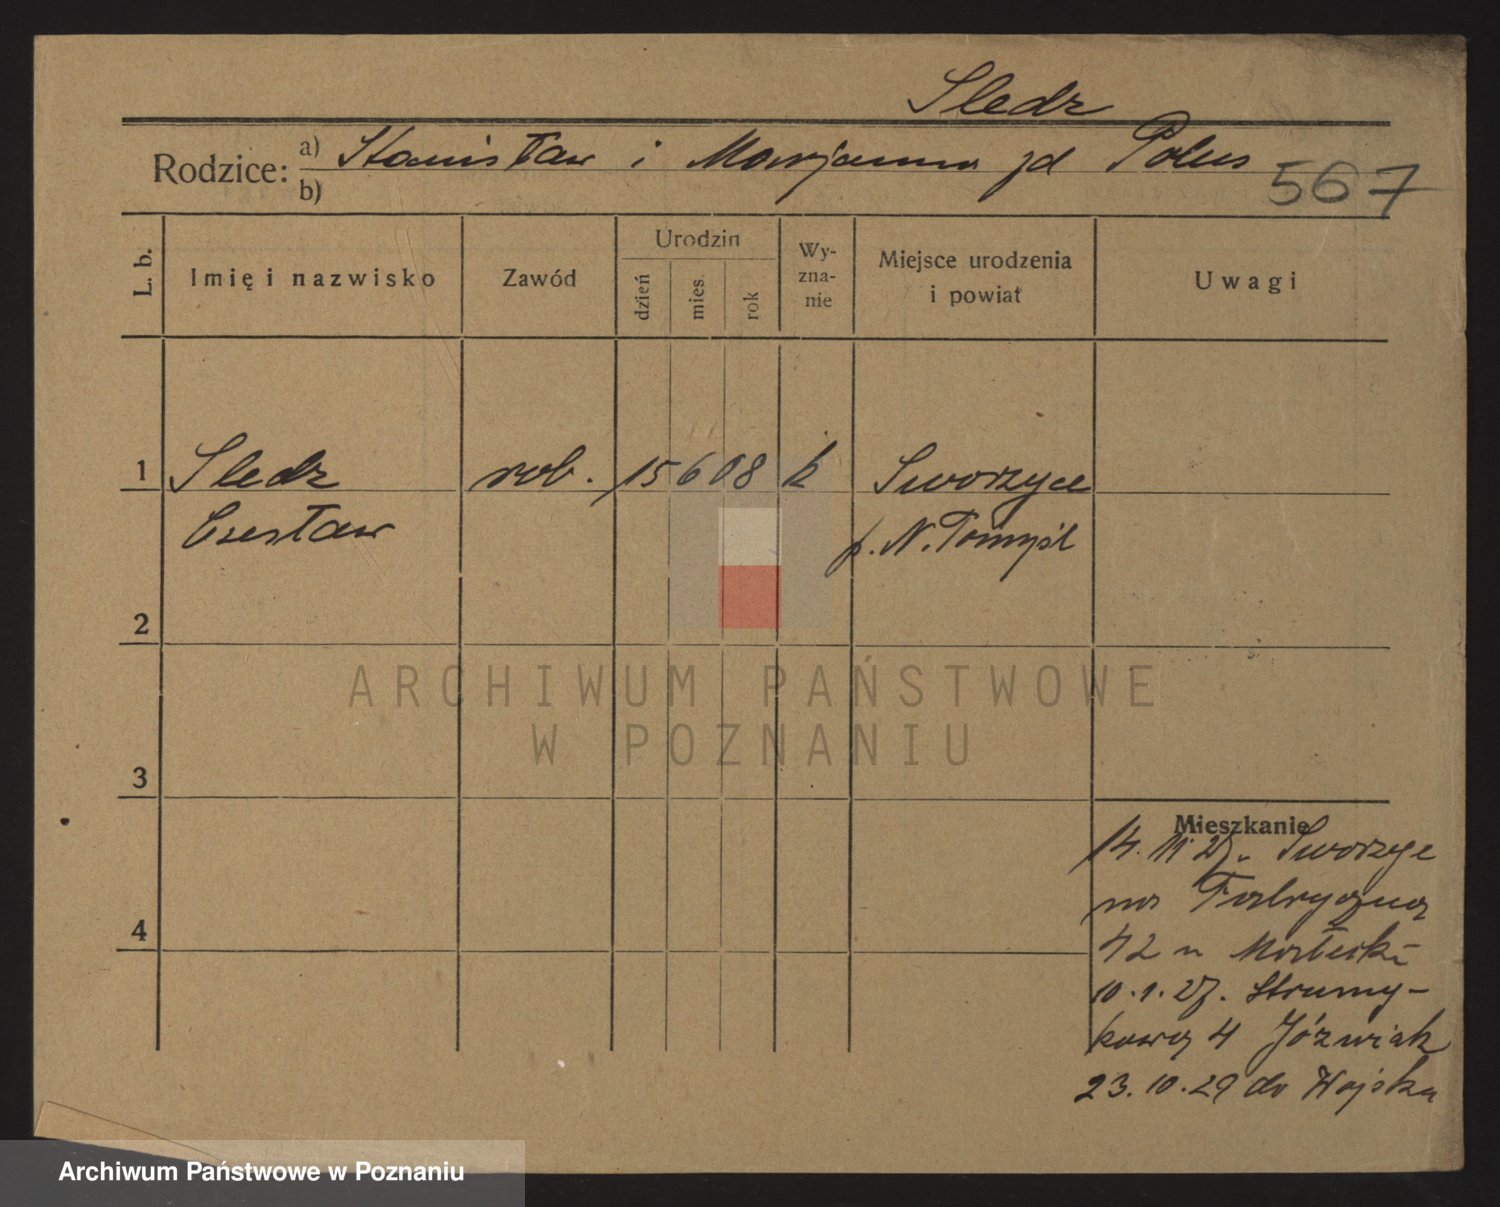 Sledz
Rodzice: a) Stanisław i Marjanna zd Polus
b)
567
L. b.
Imię i nazwisko
Zawód
Urodzin
dzień
mies.
rok
Wy-
zna-
nie
Miejsce urodzenia
i powiat
Uwagi
1 Sledz rob. 15 6 08 k Sworzyce
Czesław p. N. Tomyśl
2
3
4
Mieszkanie
14. 11. Sworzyce
na Fabryczną
42 u
10. 1. 27. Strumy-
kową 4 Józwiak
23. 10. 29 do Wojska
ARCHIWUM PAŃSTWOWE
W POZNANIU
Archiwum Państwowe w Poznaniu